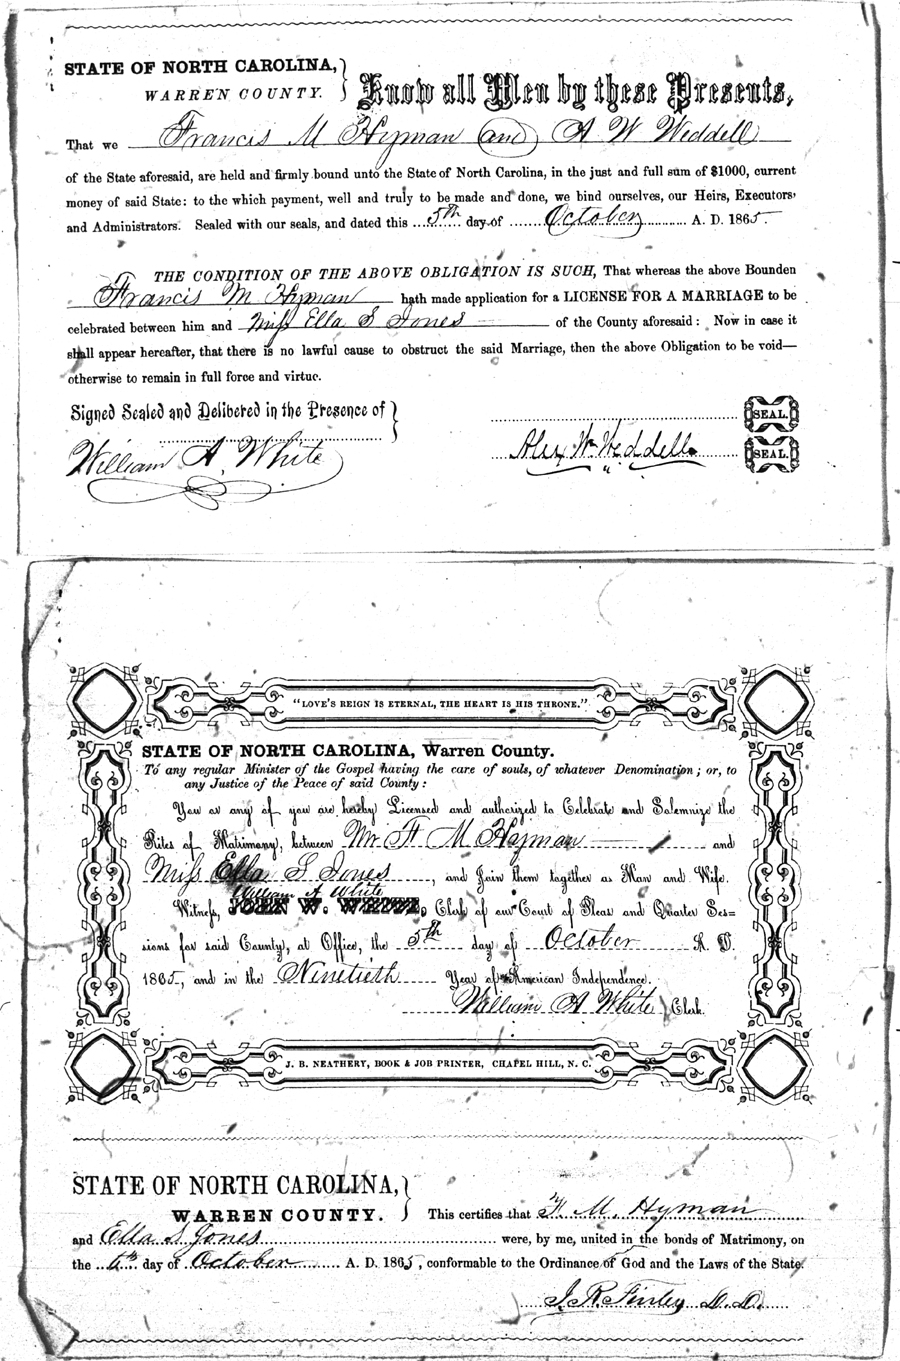 STATE OF NORTH CAROLINA,
WARREN COUNTY.
Know all Men by these Presents,
That we Francis M Hyman and A W Weddell
of the State aforesaid, are held and firmly bound unto the State of North Carolina, in the just and full sum of $1000, current
money of said State: to the which payment, well and truly to be made and done, we bind ourselves, our Heirs, Executors
and Administrators. Sealed with our seals, and dated this 5th day of October A. D. 1865
THE CONDITION OF THE ABOVE OBLIGATION IS SUCH, That whereas the above Bounden
Francis M Hyman hath made application for a LICENSE FOR A MARRIAGE to be
celebrated between him and Miss Ella S Jones of the County aforesaid: Now in case it
shall appear hereafter, that there is no lawful cause to obstruct the said Marriage, then the above Obligation to be void—
otherwise to remain in full force and virtue.
Signed Sealed and Delibered in the Presence of
SEAL.
William A. White
Alex Wm Weddell
SEAL.
"LOVE'S REIGN IS ETERNAL, THE HEART IS HIS THRONE."
STATE OF NORTH CAROLINA, Warren County.
To any regular Minister of the Gospel having the care of souls, of whatever Denomination; or, to
any Justice of the Peace of said County:
You or any of you are hereby Licensed and authorized to Celebrate and Solemnize the
Rites of Matrimony, between Mr F M Hyman and
Miss Ella S Jones, and Join them together as Man and Wife.
William A White
Witness, JOHN W. WHITE, Clerk of our Court of Pleas and Quarter Ses=
sions for said County, at Office, the 5th day of October A. D.
1865, and in the Ninetieth Year of American Independence.
William A White Clerk.
J. B. NEATHERY, BOOK & JOB PRINTER, CHAPEL HILL, N. C.
STATE OF NORTH CAROLINA,
WARREN COUNTY.
This certifies that F. M. Hyman
and Ella S Jones were, by me, united in the bonds of Matrimony, on
the day of October A. D. 1865, conformable to the Ordinance of God and the Laws of the State.
J. R. Finley D. D.